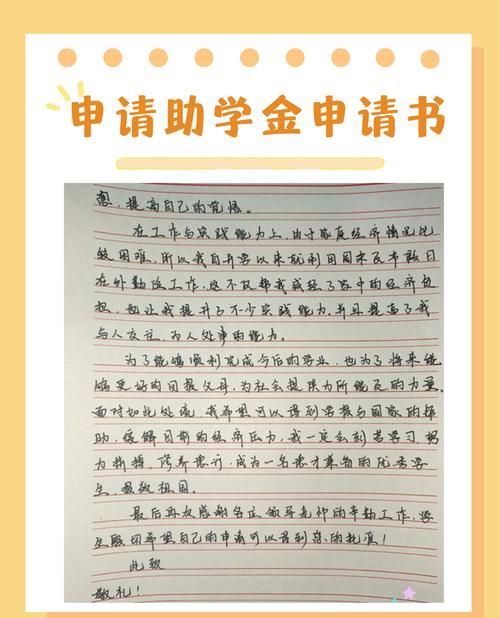 申请助学金申请书
想,提高自己的觉悟。
在工作与实践能力上,由于家庭经济情况比
较困难,所以我自开学以来就利用周末及节假日
在外勤俭工作,这不仅帮我减轻了家中的经济负
担,也让我提升了不少实践能力,并且提高了我
与人交往,为人处事的能力。
为了能够顺利完成今后的学业,也为了将来能
够更好的回报父母,为社会提供力所能及的力量。
面对如此处境,我希望可以得到学校与国家的帮
助,缓解目前的经济压力,我一定会刻苦学习,努
力拼搏,修养德行,成为一名德才兼备的优秀学
生,报效祖国。
最后再次感谢各位领导老师的辛勤工作,学
生殷切希望自己的申请可以得到您的批准!
此致
敬礼!